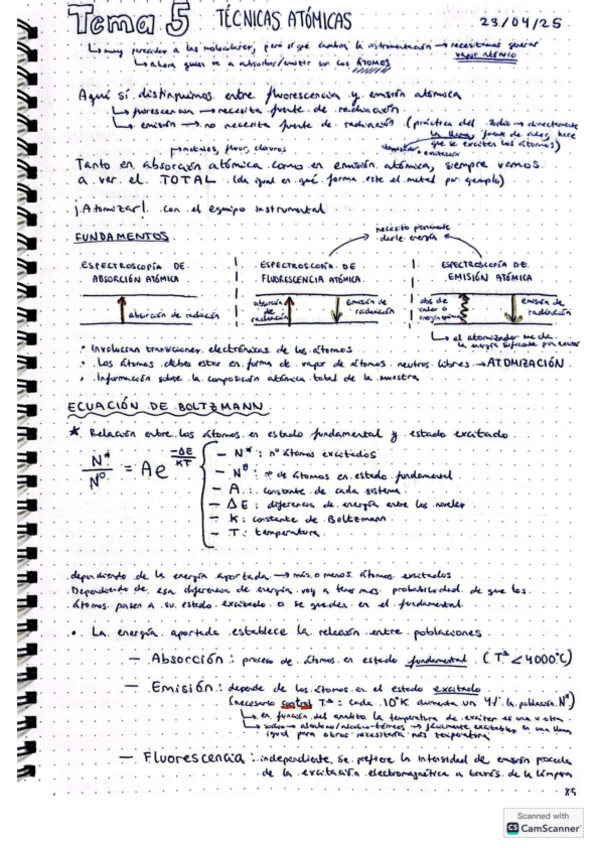 Tema 5 TÉCNICAS ATÓMICAS 23/04/25
↳ muy parecidas a las moleculares, pero el que cambia la instrumentación → necesitamos generar vapor atómico
↳ ahora quien va a absorber/emitir son los ÁTOMOS
Aquí sí distinguimos entre fluorescencia y emisión atómica
↳ fluorescencia → necesita fuente de radiación
↳ emisión → no necesita fuente de radiación (práctica del sodio → directamente
la llama, fuente de calor, hace
que se exciten los átomos)
→ metales, fluor, cloruros
+ excitación
Tanto en absorción atómica como en emisión atómica, siempre vamos
a ver el TOTAL (da igual en qué forma este el metal por ejemplo)
¡Atomizar! con el equipo instrumental
necesito previamente
darle energía
FUNDAMENTOS
ESPECTROSCOPÍA DE
ABSORCIÓN ATÓMICA
absorción de radiación
ESPECTROSCOPÍA DE
FLUORESCENCIA ATÓMICA
absorción
de
radiación
emisión de
radiación
ESPECTROSCOPÍA DE
EMISIÓN ATÓMICA
abs de
calor o
energía química
emisión de
radiación
↳ el atomizador me da
la energía suficiente para excitar
• Involucran transiciones electrónicas de los átomos
• Los átomos deben estar en forma de vapor de átomos neutros libres → ATOMIZACIÓN
• Información sobre la composición atómica total de la muestra
ECUACIÓN DE BOLTZMANN
★ Relación entre los átomos en estado fundamental y estado excitado
N*/N° = Ae^(-ΔE/KT)
— N*: nº átomos excitados
— N°: nº de átomos en estado fundamental
— A: constante de cada sistema
— ΔE: diferencia de energía entre los niveles
— K: constante de Boltzmann
— T: temperatura
dependiendo de la energía aportada → más o menos átomos excitados
Dependiendo de esa diferencia de energía voy a tener más probabilidad de que los
átomos pasen a su estado excitado o se queden en el fundamental
• La energía aportada establece la relación entre poblaciones
— Absorción: proceso de átomos en estado fundamental (Tª < 4000°C)
— Emisión: depende de los átomos en el estado excitado
(necesario control Tª: cada 10°K aumenta un 4% la población N*)
↳ en función del analito la temperatura de excitar es una u otra
↳ sodio → alcalinos/alcalino-térreos → fácilmente excitables en una llama
igual para otros necesitaría más temperatura
— Fluorescencia: independiente, se prefiere la intensidad de emisión procede
de la excitación electromagnética a través de la lámpara
85
Scanned with
CS CamScanner